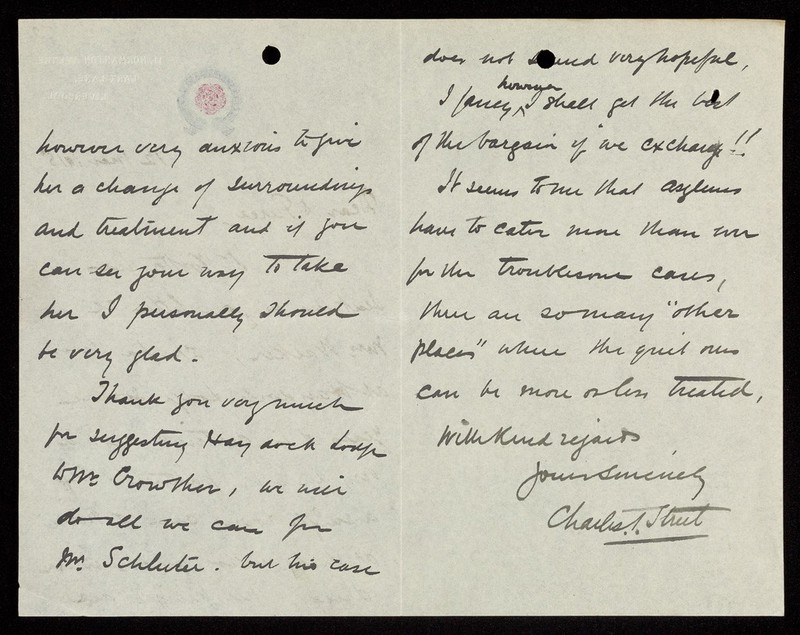 however very anxious to give
her a change of surroundings
and treatment and if you
can see your way to take
her I personally should
be very glad.
Thank you very much
for suggesting Haydock Lodge
to Mr. Crowther, we will
do all we can for
Mr. Schluter. but his case
does not sound very hopeful,
I fancy, however I shall get the best
of the bargain if we exchange!!
It seems to me that asylums
have to cater more than ever
for the troublesome cases,
there are so many "other
places" where the quiet ones
can be more or less treated,
With kind regards
Yours sincerely
Charles T. Street